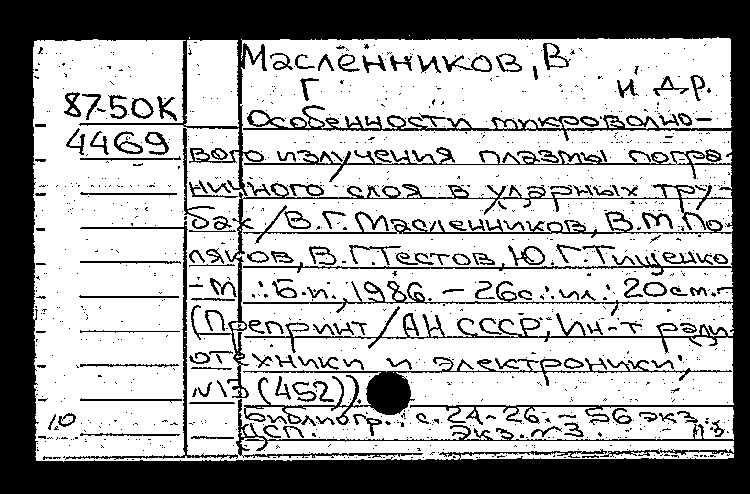 Масленников, В
Г и др.
87-50К
4469
Особенности микроволно-
вого излучения плазмы погра-
ничного слоя в ударных тру-
бах / В.Г. Масленников, В.М. По-
ляков, В.Г. Тестов, Ю.Г. Тищенко
-М.: Б.и., 1986. - 26с.: ил.; 20см.-
(Препринт / АН СССР, Ин-т ради-
отехники и электроники;
N13 (452)).
Библиогр.: с. 24-26. - 56 экз.
экз.
10